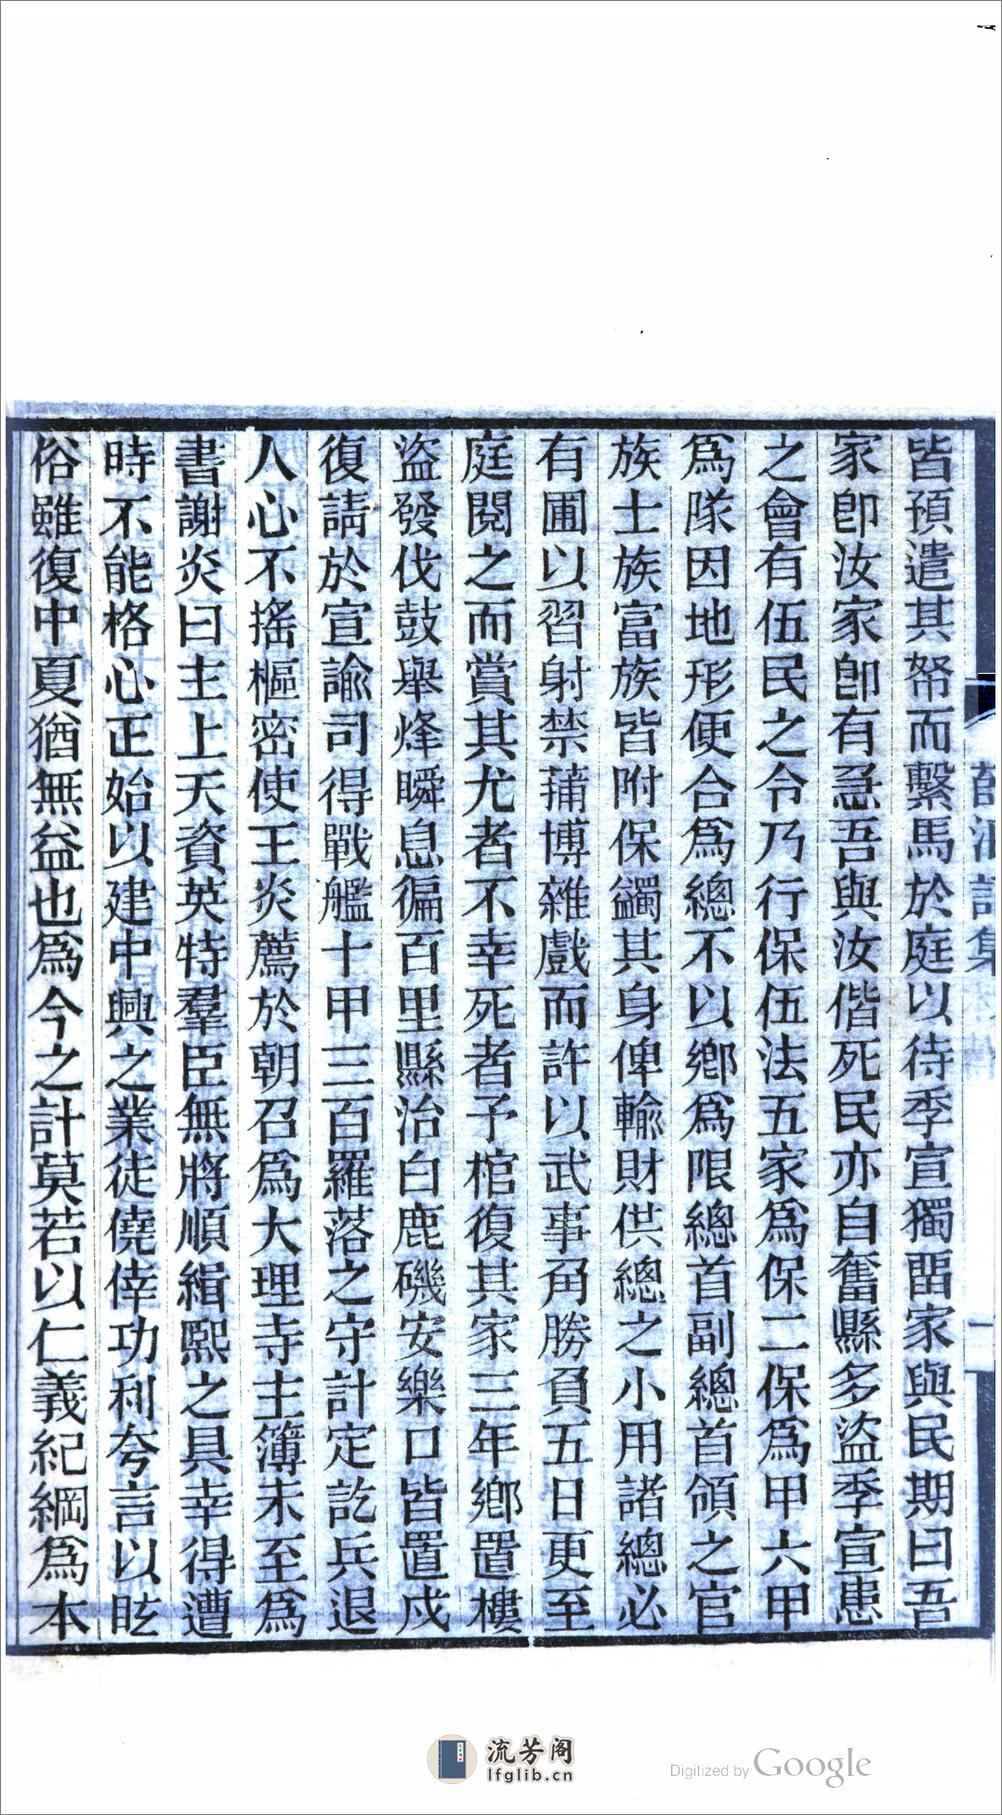 皆預遣其帑而繫馬於庭以待季宣獨畱家與民期曰吾
家卽汝家卽有急吾與汝偕死民亦自奮縣多盜季宣患
之會有伍民之令乃行保伍法五家爲保二保爲甲六甲
爲隊因地形便合爲總不以鄉爲限總首副總首領之官
族士族富族皆附保蠲其身俾輸財供總之小用諸總必
有圃以習射禁蒱博雜戲而許以武事角勝負五日更至
庭閱之而賞其尤者不幸死者予棺復其家三年鄉置樓
盜發伐鼓舉烽瞬息徧百里縣治白鹿磯安樂口皆置戍
復請於宣諭司得戰艦十甲三百羅落之守計定訖兵退
人心不搖樞密使王炎薦於朝召爲大理寺主簿未至爲
書謝炎曰主上天資英特羣臣無將順緝熙之具幸得遭
時不能格心正始以建中興之業徒僥倖功利夸言以眩
俗雖復中夏猶無益也爲今之計莫若以仁義紀綱爲本
流芳阁
lfglib.cn
Digitized by Google